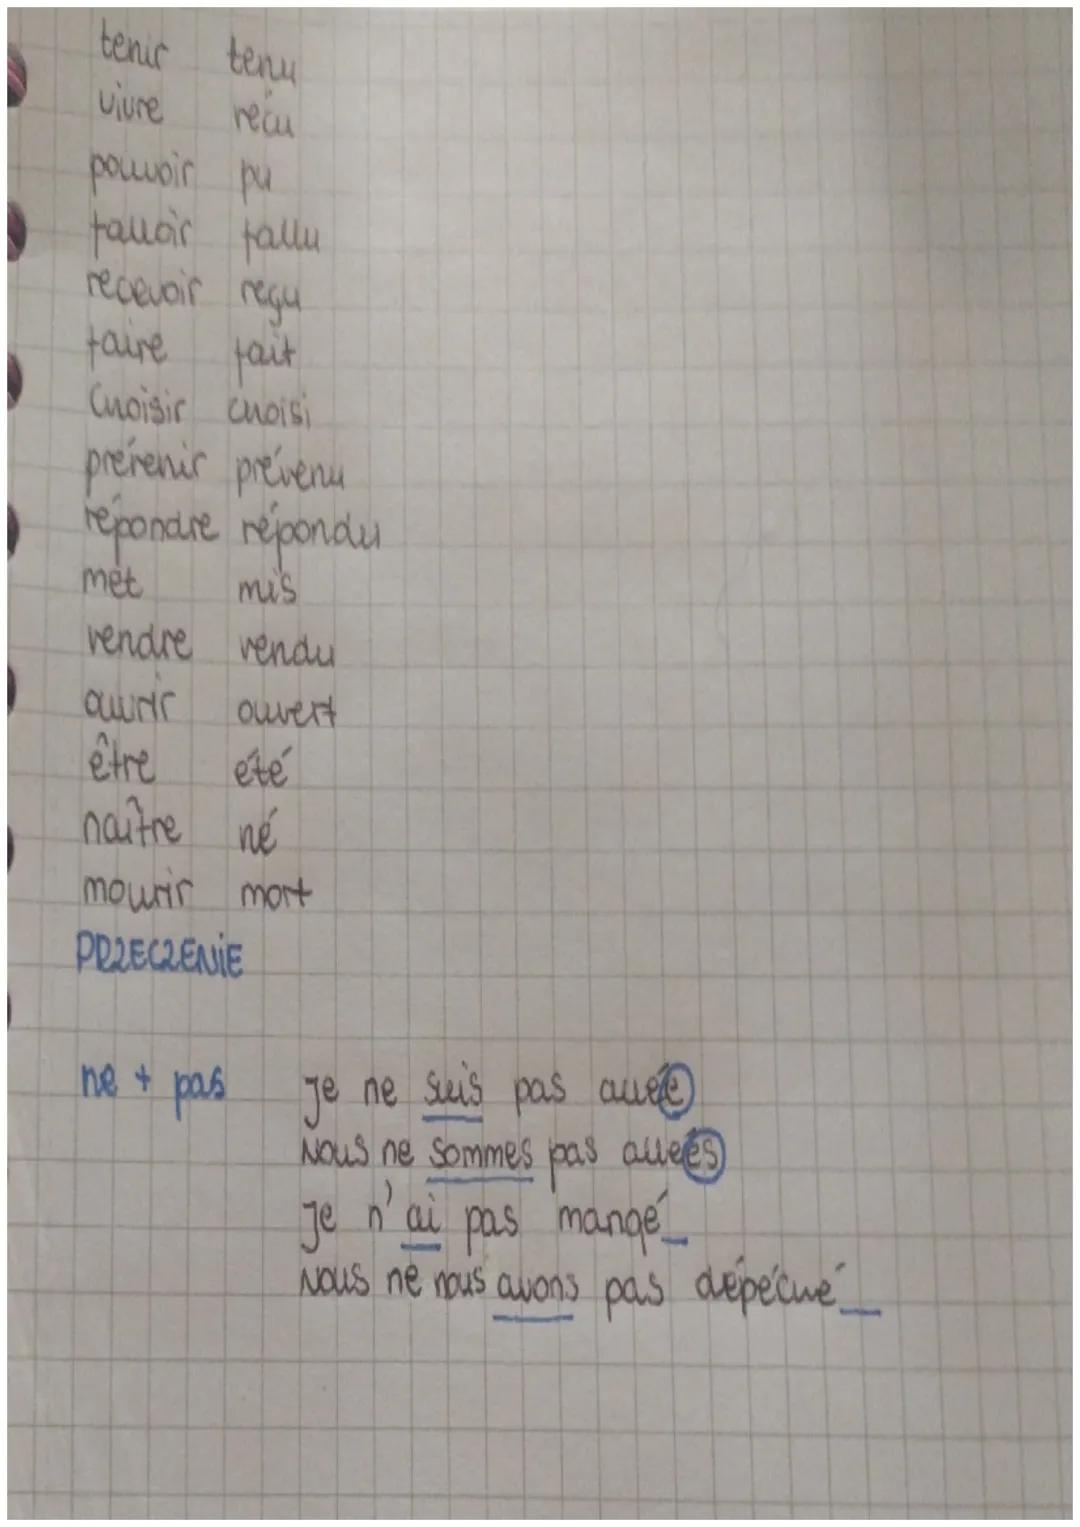 tenir tenu
vivre reçu
pouvoir pu
falloir fallu
recevoir reçu
faire fait
Choisir choisi
prévenir prévenu
répondre répondu
met mis
vendre vendu
ouvrir ouvert
être été
naître né
mourir mort
PRZECZENIE
ne + pas je ne suis pas allée
Nous ne sommes pas allées
je n'ai pas mangé_
Nous ne nous avons pas dépéché_